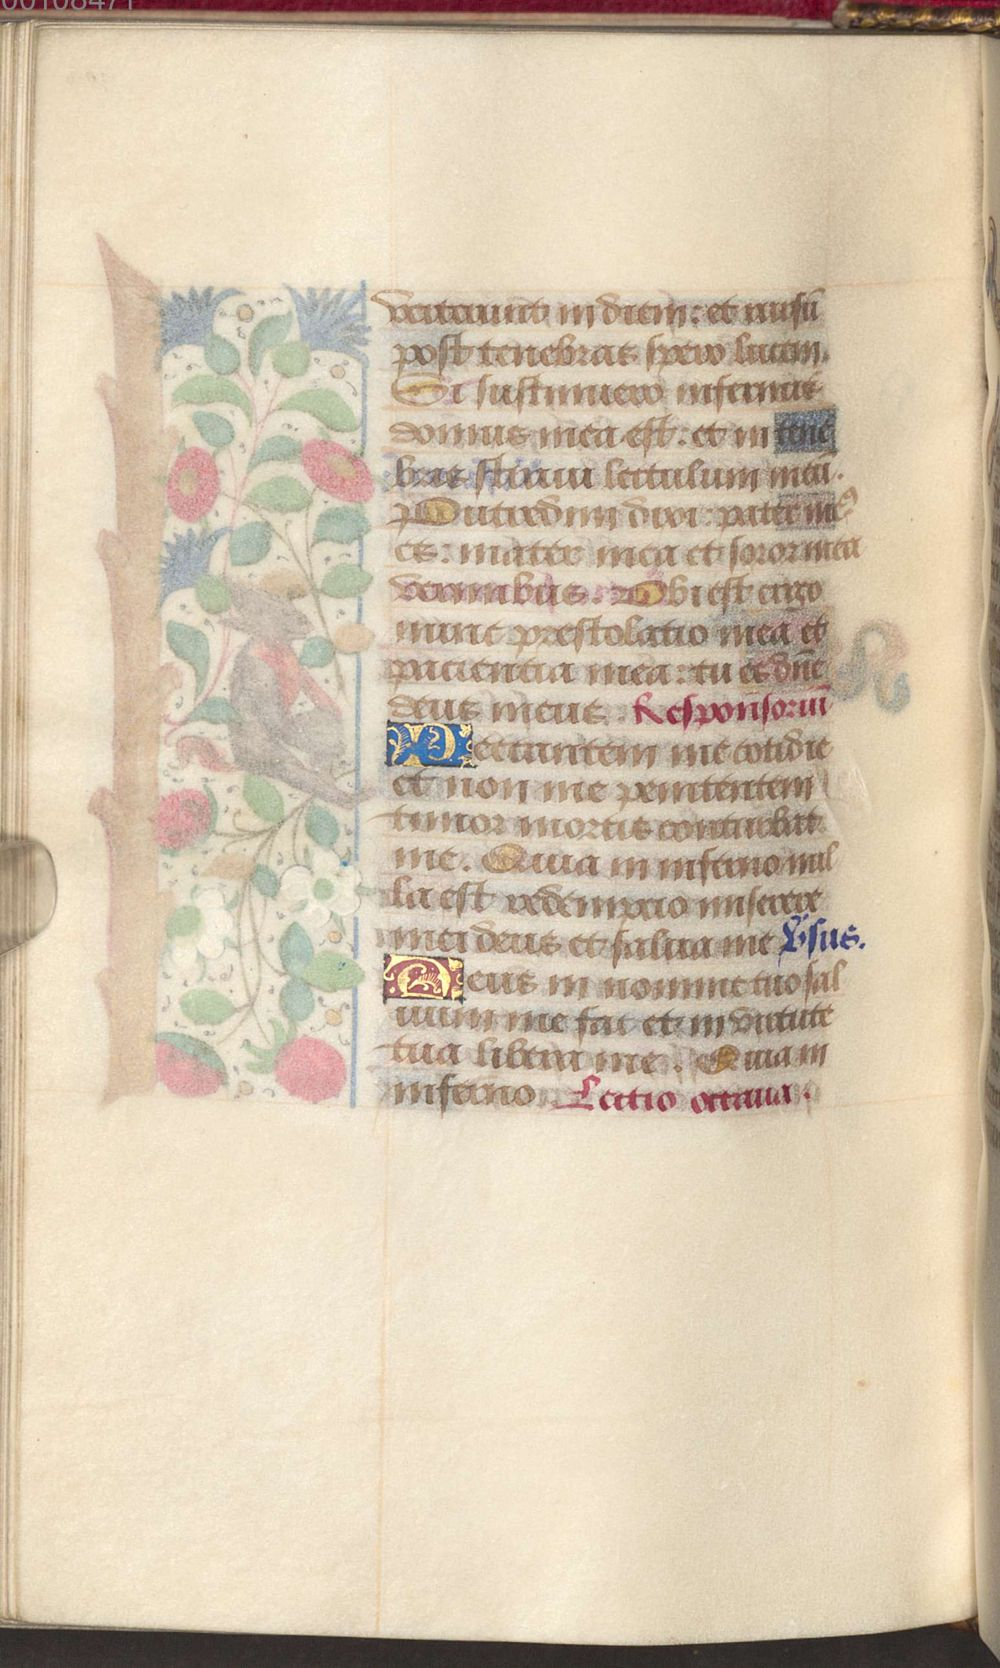 00108471
verterunt in diem: et rursũ
post tenebras spero lucem.
Si sustinuero infernus
domus mea est: et in tene
bras straui lectulum meũ.
Putredini dixi: pater me9
es: mater mea et soror mea
vermibus. Vbi est ergo
nunc prestolatio mea et
paciencia mea: tu es dñe
deus meus. Responsoriũ
Peccantem me cotidie
et non me penitentem
timor mortis conturbat
me. Quia in inferno nul
la est redempcio miserere
mei deus et salua me v̉sus.
Deus in nomine tuo sal
uum me fac et in virtute
tua libera me. Quia in
inferno Lectio octaua.